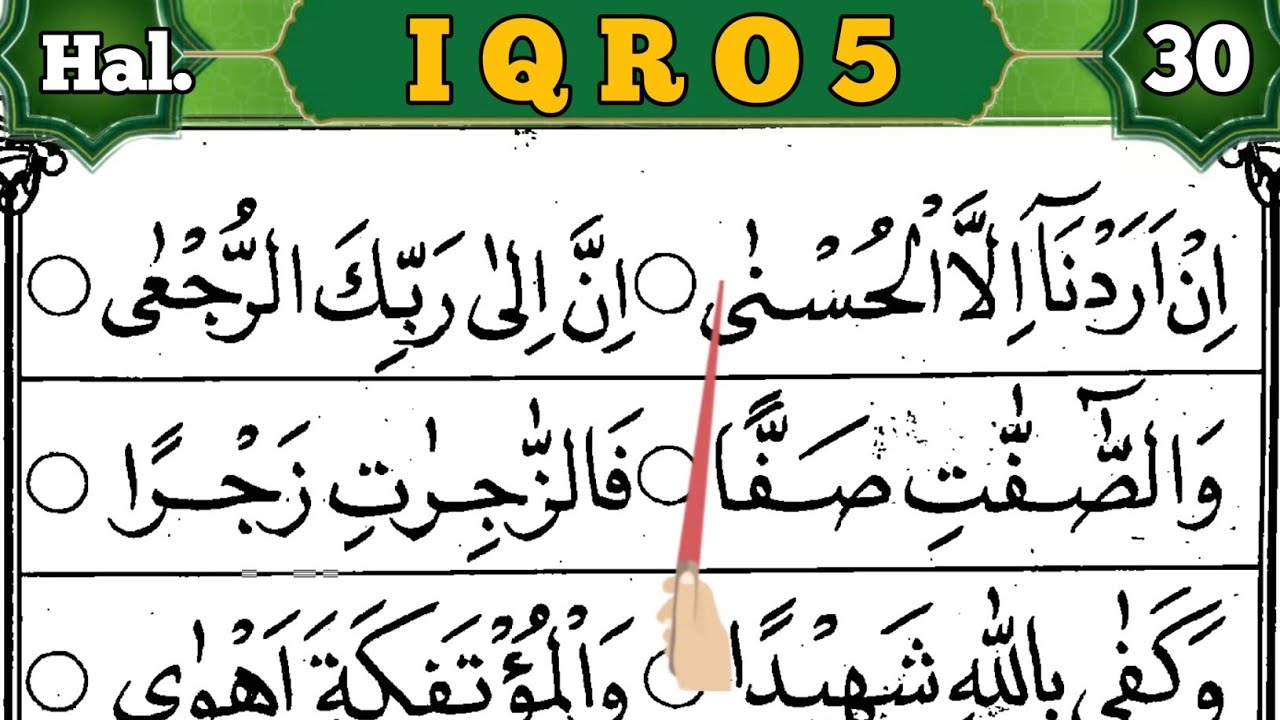 Hal. IQRO 5 30
اِنْ اَرَدْنَآ اِلَّا الْحُسْنٰى ○ اِنَّ اِلٰى رَبِّكَ الرُّجْعٰى ○
وَالصّٰٓفّٰتِ صَفًّا ○ فَالزّٰجِرٰتِ زَجْرًا ○
وَكَفٰى بِاللّٰهِ شَهِيْدًا ○ وَالْمُؤْتَفِكَةَ اَهْوٰى ○